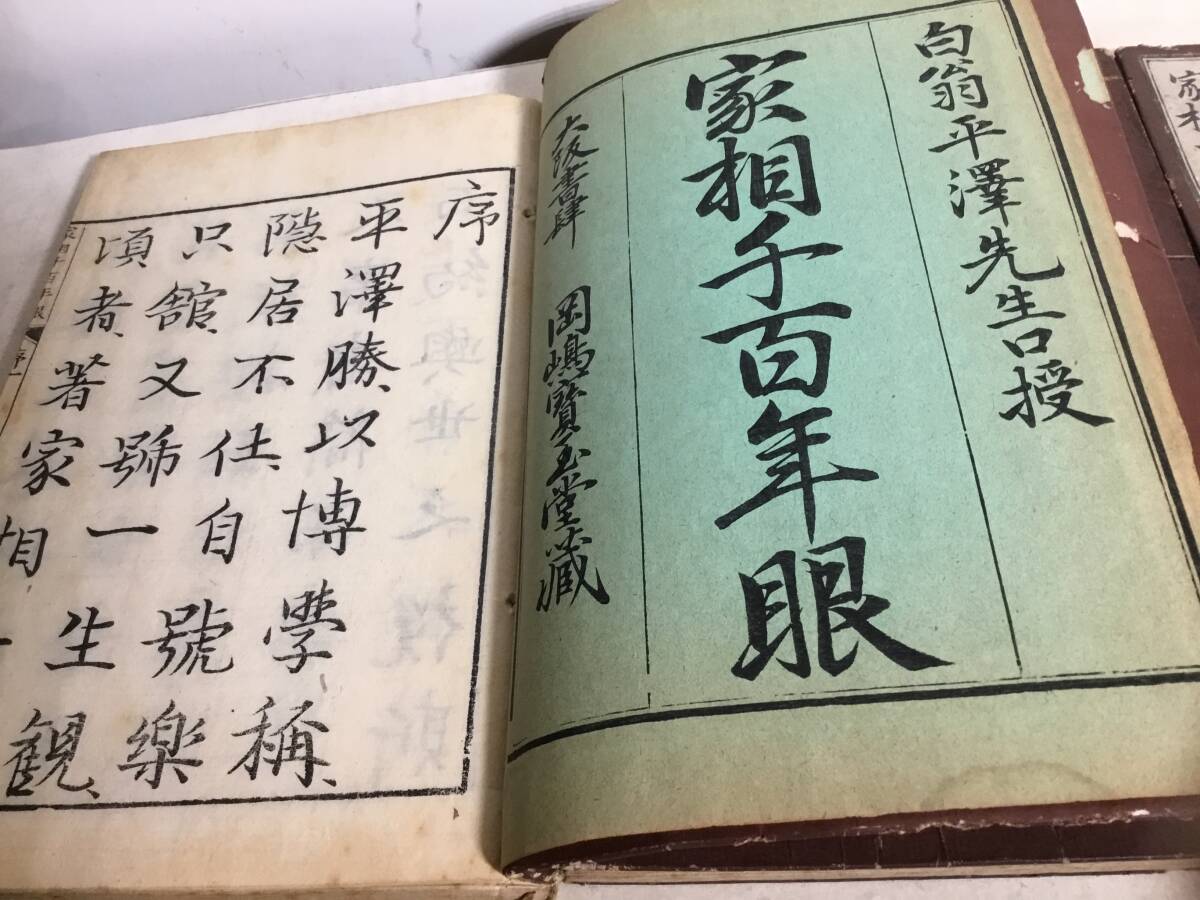 白翁平澤先生口授
家相千百年眼
大阪書肆 岡嶋寶玉堂藏
序
平澤勝、以博學稱、
隐居不仕、自號樂
只舘、又號一生觀、
頃者、著家相
家相